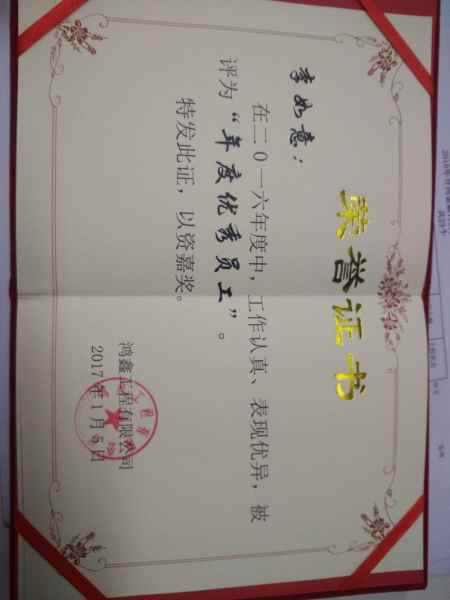 荣誉证书
李如意：
在二0一六年度中，工作认真、表现优异，被
评为“年度优秀员工”。
特发此证，以资嘉奖。
鸿鑫工程有限公司
2017年1月5日